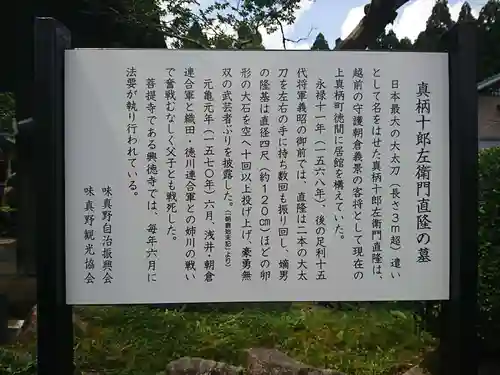 真柄十郎左衛門直隆の墓
日本最大の大太刀（長さ３ｍ超）遣い
として名をはせた真柄十郎左衛門直隆は、
越前の守護朝倉義景の客将として現在の
上真柄町徳間に居館を構えていた。
永禄十一年（一五六八年）、後の足利十五
代将軍義昭の御前では、直隆は二本の大太
刀を左右の手に持ち数回も振り回し、嫡男
の隆基は直径四尺（約１２０㎝）ほどの卵
形の大石を空へ十回以上投げ上げ、豪勇無
双の武芸者ぶりを披露した。（「朝倉始末記」より）
元亀元年（一五七〇年）六月、浅井・朝倉
連合軍と織田・徳川連合軍との姉川の戦い
で奮戦むなしく父子とも戦死した。
菩提寺である興徳寺では、毎年六月に
法要が執り行われている。
味真野自治振興会
味真野観光協会